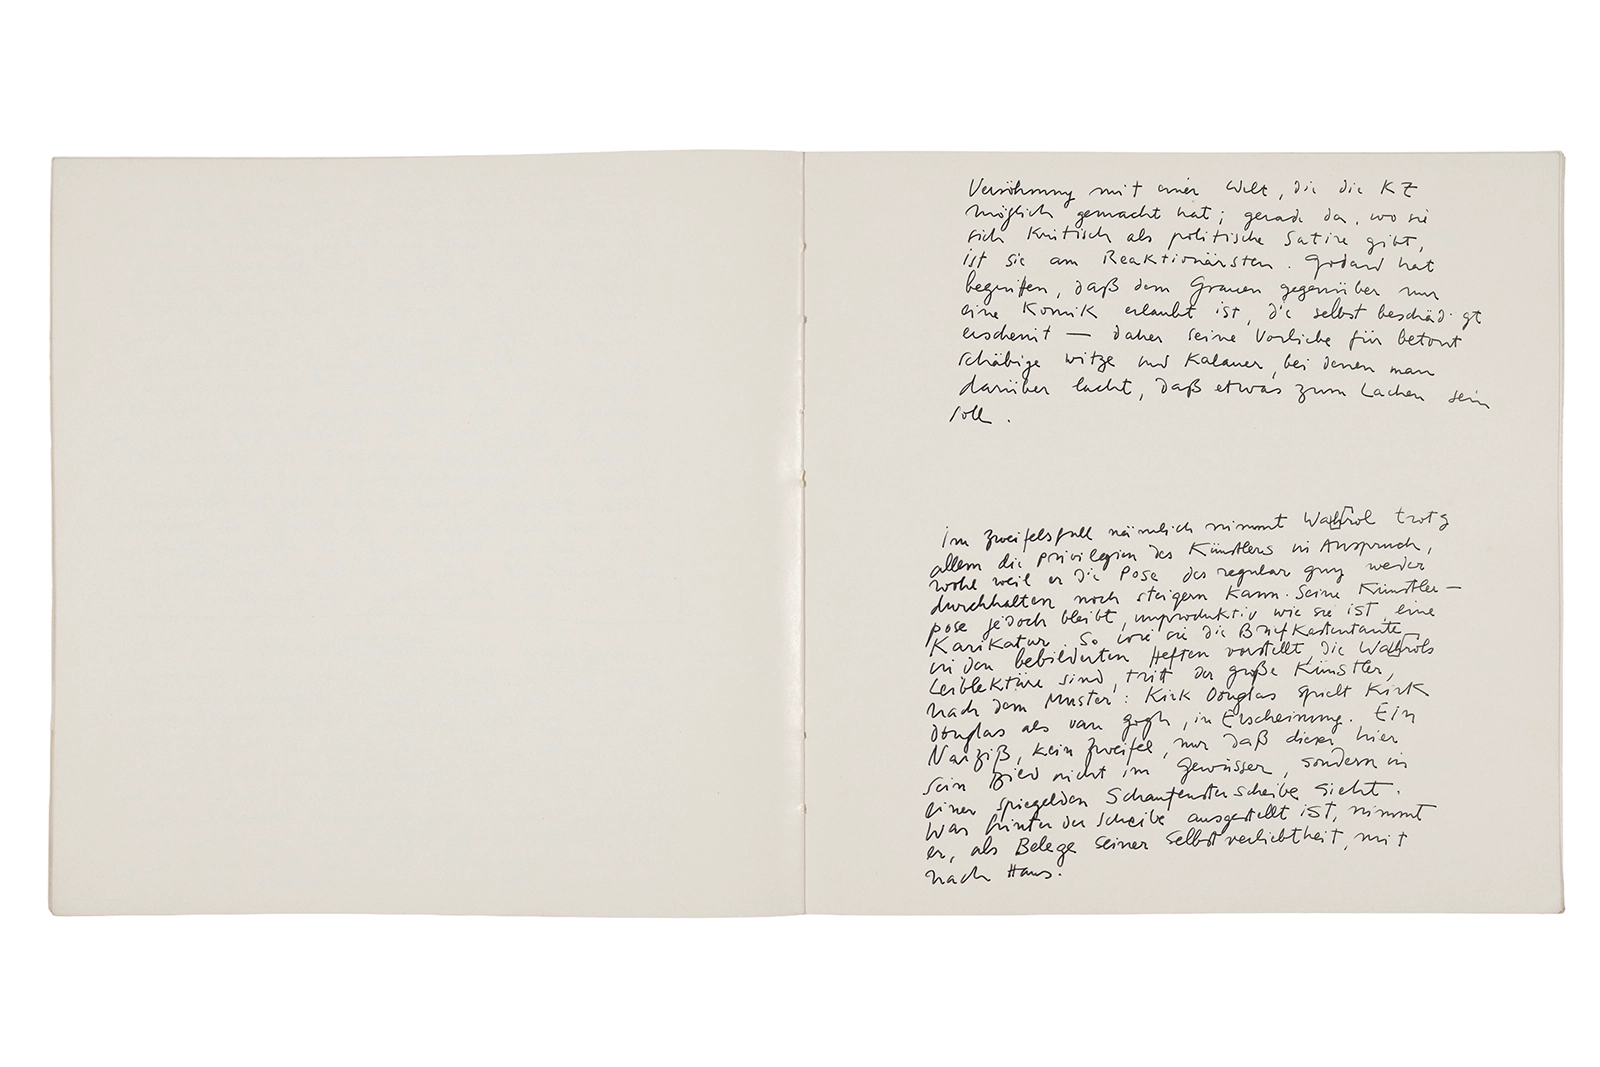 Versöhnung mit einer Welt, die die KZ
möglich gemacht hat; gerade da, wo sie
sich kritisch als politische Satire gibt,
ist sie am Reaktionärsten. Godard hat
begriffen, daß dem Grauen gegenüber nur
eine Komik erlaubt ist, die selbst beschädigt
erscheint — daher seine Vorliebe für betont
schäbige Witze und Kalauer, bei denen man
darüber lacht, daß etwas zum Lachen sein
soll.
Im Zweifelsfall nämlich nimmt trotz
allem die Privilegien des Künstlers in Anspruch,
wohl weil er die Pose des regular guy weder
durchhalten noch steigern kann. Seine Künstler-
pose jedoch bleibt, unproduktiv wie sie ist eine
Karikatur. So wie sie die Briefkastentante
in den bebilderten Heften vorstellt, die
Leiblektüre sind, tritt der große Künstler,
nach dem Muster: Kirk Douglas spielt Kirk
Douglas als van gogh, in Erscheinung. Ein
Narziß, kein Zweifel, nur daß dieser hier
sein Bild nicht im Gewässer, sondern in
einer spiegelden Schaufensterscheibe sieht.
Was hinter der Scheibe ausgestellt ist, nimmt
er, als Belege seiner Selbstverliebtheit, mit
nach Haus.